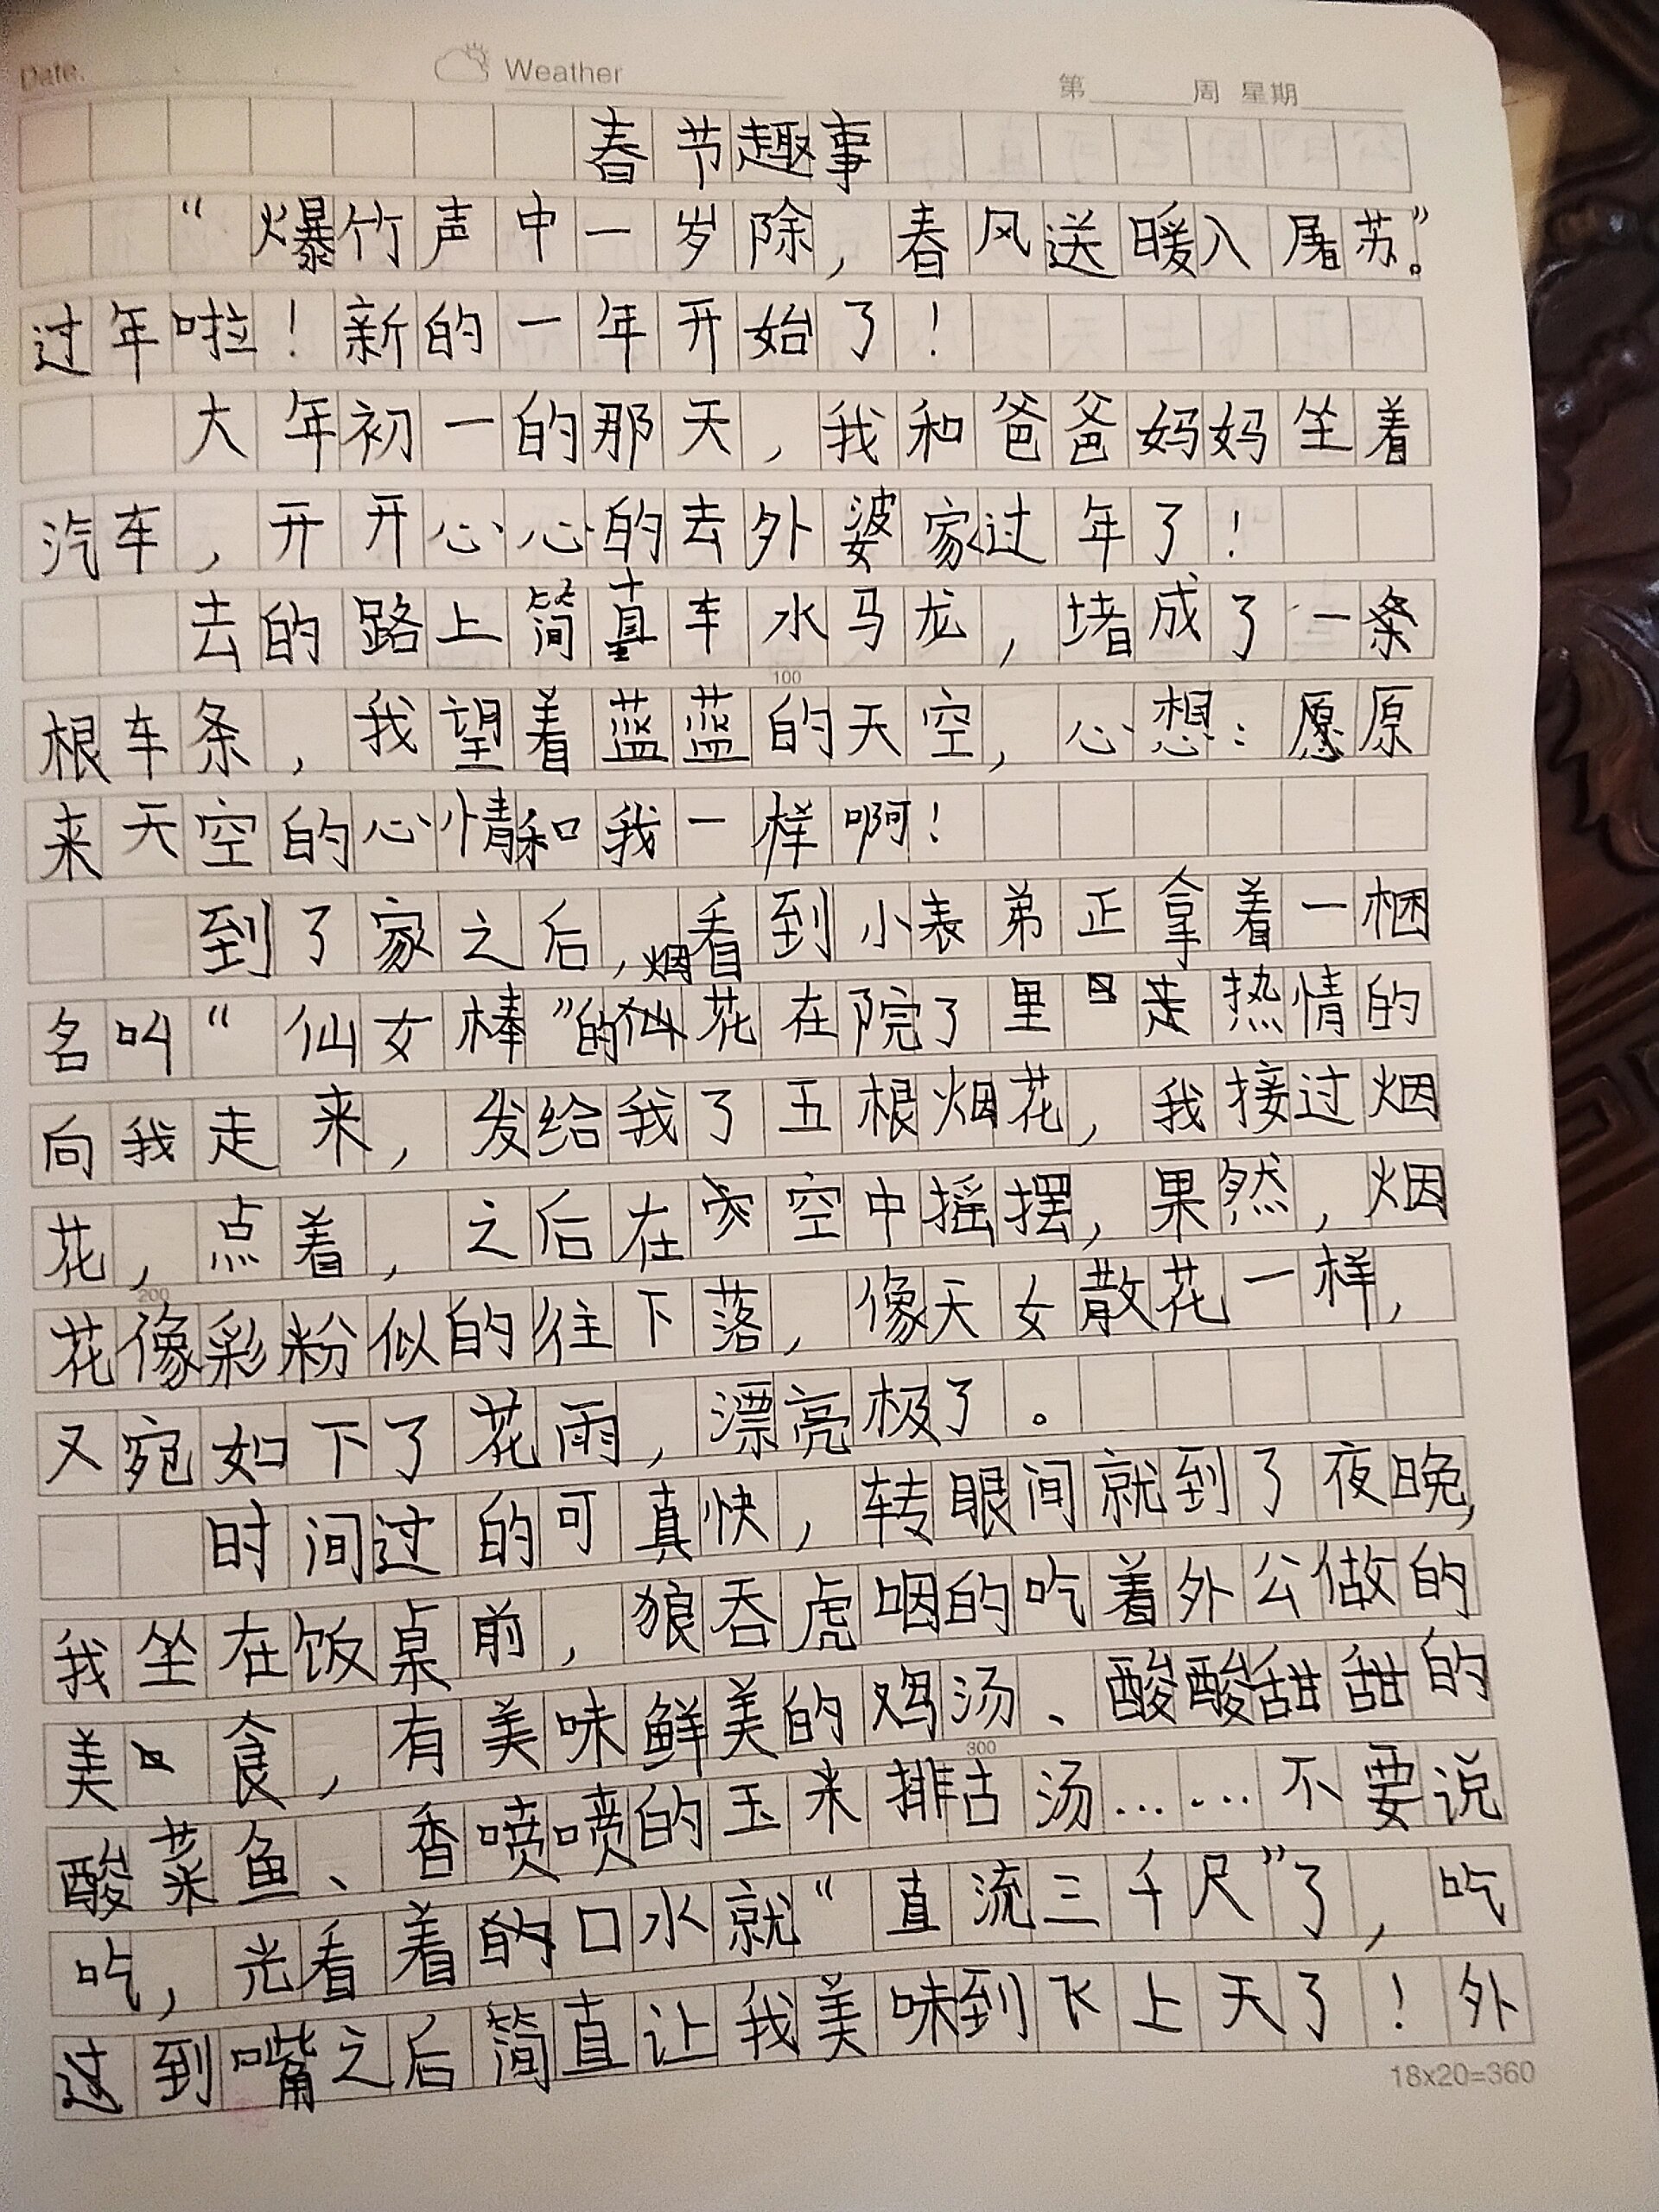 Date.
Weather
第 周 星期
春节趣事
“爆竹声中一岁除，春风送暖入屠苏。”
过年啦！新的一年开始了！
大年初一的那天，我和爸爸妈妈坐着
汽车，开开心心的去外婆家过年了！
去的路上简直车水马龙，堵成了一条
100
根车条，我望着蓝蓝的天空，心想：愿原
来天空的心情和我一样啊！
到了家之后，看到小表弟正拿着一捆
名叫“仙女棒”的烟花在院了里走热情的
向我走来，发给我了五根烟花，我接过烟
花，点着，之后在空中摇摆，果然，烟
200
花像彩粉似的往下落，像天女散花一样，
又宛如下了花雨，漂亮极了。
时间过的可真快，转眼间就到了夜晚，
我坐在饭桌前，狼吞虎咽的吃着外公做的
美食，有美味鲜美的鸡汤、酸酸甜甜的
300
酸菜鱼、香喷喷的玉米排古汤……不要说
吃，光看着的口水就“直流三千尺”了，吃
过到嘴之后简直让我美味到飞上天了！外
18x20=360